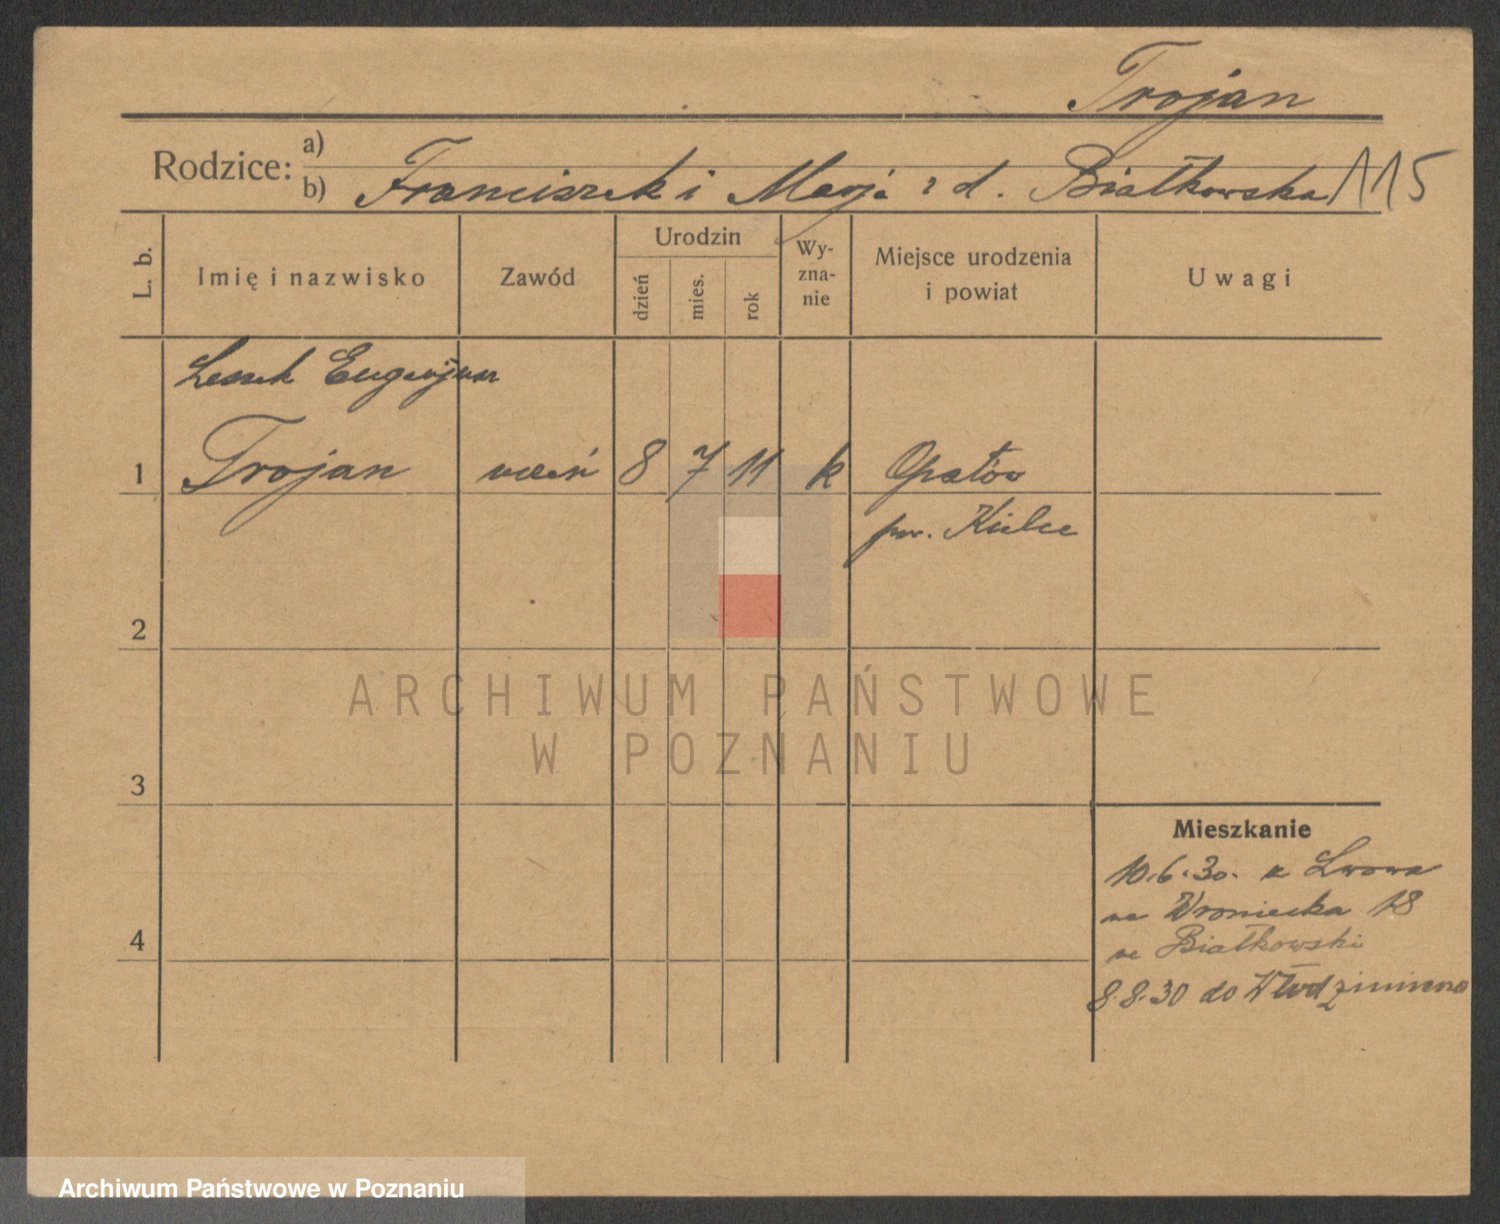 Trojan
Rodzice: a)
b) Franciszek i Marja z d. Białkowska 115
L. b.
Imię i nazwisko
Zawód
Urodzin
dzień
mies.
rok
Wy-
zna-
nie
Miejsce urodzenia
i powiat
Uwagi
Leszek Eugenjusz
1 Trojan uczeń 8 7 11 k Opatów
pow. Kielce
2
3
4
Mieszkanie
10.6.30. z Lwowa
Wroniecka 18
Białkowski
8.8.30 do Włodzimierza
ARCHIWUM PAŃSTWOWE
W POZNANIU
Archiwum Państwowe w Poznaniu